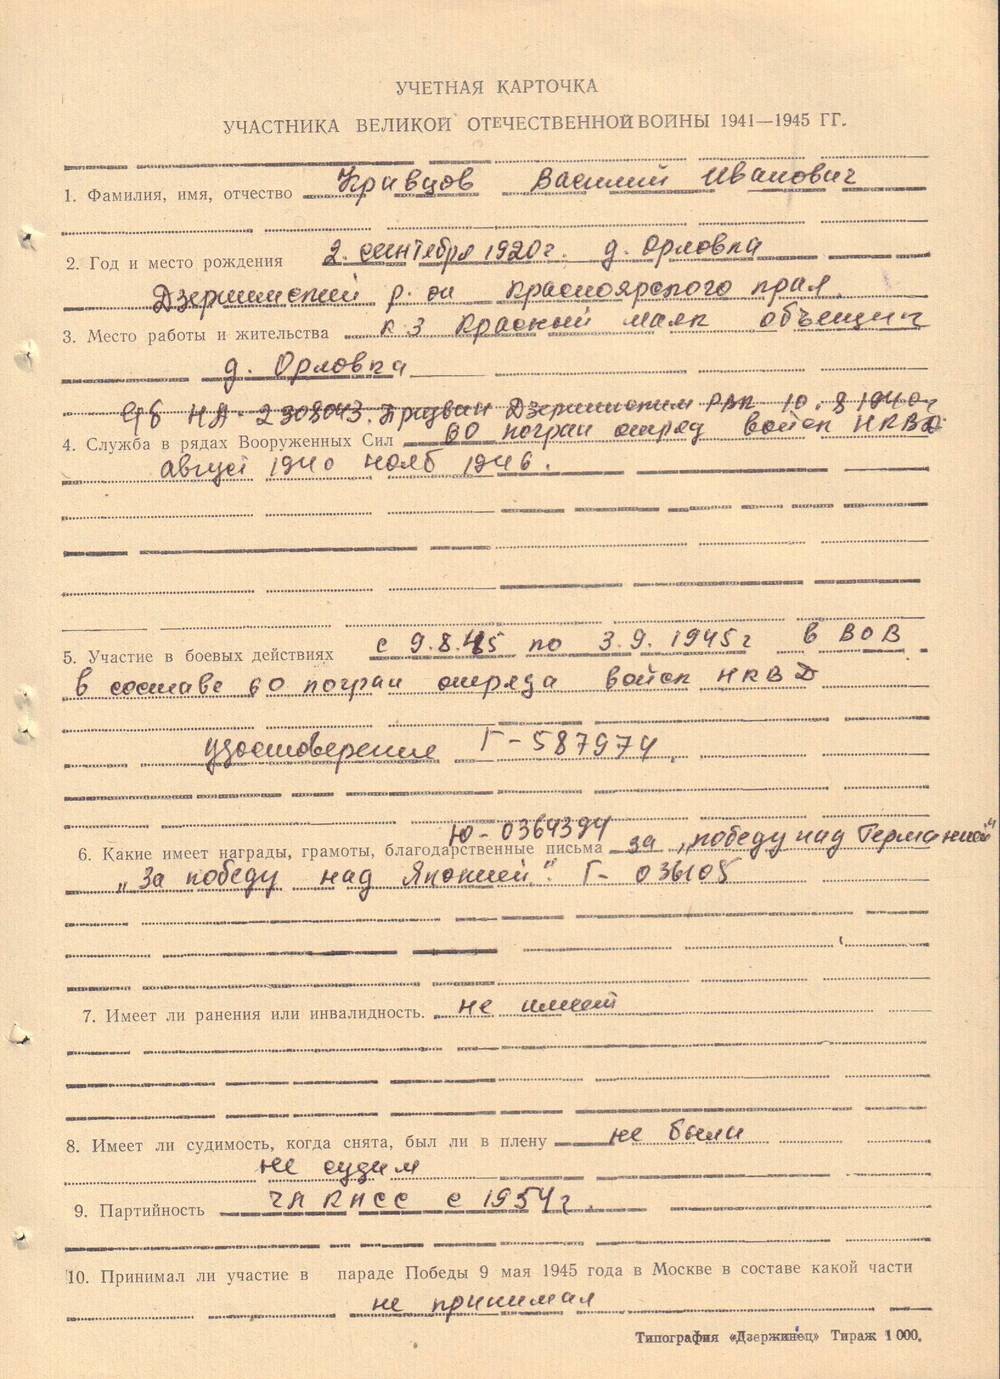 УЧЕТНАЯ КАРТОЧКА
УЧАСТНИКА ВЕЛИКОЙ ОТЕЧЕСТВЕННОЙ ВОЙНЫ 1941—1945 ГГ.
1. Фамилия, имя, отчество Кравцов Василий Иванович
2. Год и место рождения 2. сентября 1920г. д. Орловка
Дзержинский р-он Красноярского края.
3. Место работы и жительства к-з Красный маяк объещик
д. Орловка
НД-2308043. Призван Дзержинским РВК 10.8 1940г
4. Служба в рядах Вооруженных Сил 60 погран отряд войск НКВД
август 1940 нояб 1946.
5. Участие в боевых действиях с 9.8.45 по 3.9.1945г в ВОВ
в составе 60 погран отряда войск НКВД
удостоверение Г-587974
Ю-0364394
6. Какие имеет награды, грамоты, благодарственные письма за „победу над Германией"
„За победу над Японией". Г- 036105
7. Имеет ли ранения или инвалидность. не имеет
8. Имеет ли судимость, когда снята, был ли в плену не были
не судим
9. Партийность ЧЛ КПСС с 1954г.
10. Принимал ли участие в параде Победы 9 мая 1945 года в Москве в составе какой части
не принимал
Типография «Дзержинец» Тираж 1000.